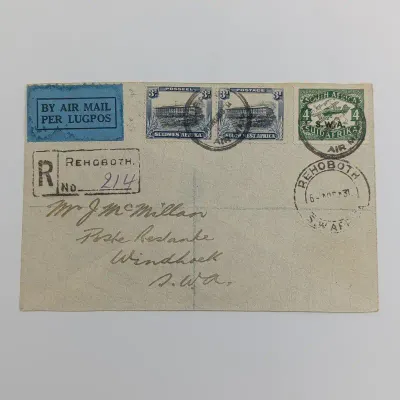 BY AIR MAIL
PER LUGPOS
3d POSSEËL 3d POSTAGE
SUIDWES AFRIKA SOUTH WEST AFRICA
SOUTH AFRICA
4 S.W.A. 4
ZUID AFRIKA
AIR M
R REHOBOTH.
No. 214
REHOBOTH
S.W. AFR
Mr J McMillan
Poste Restante
Windhoek
S.W.A.